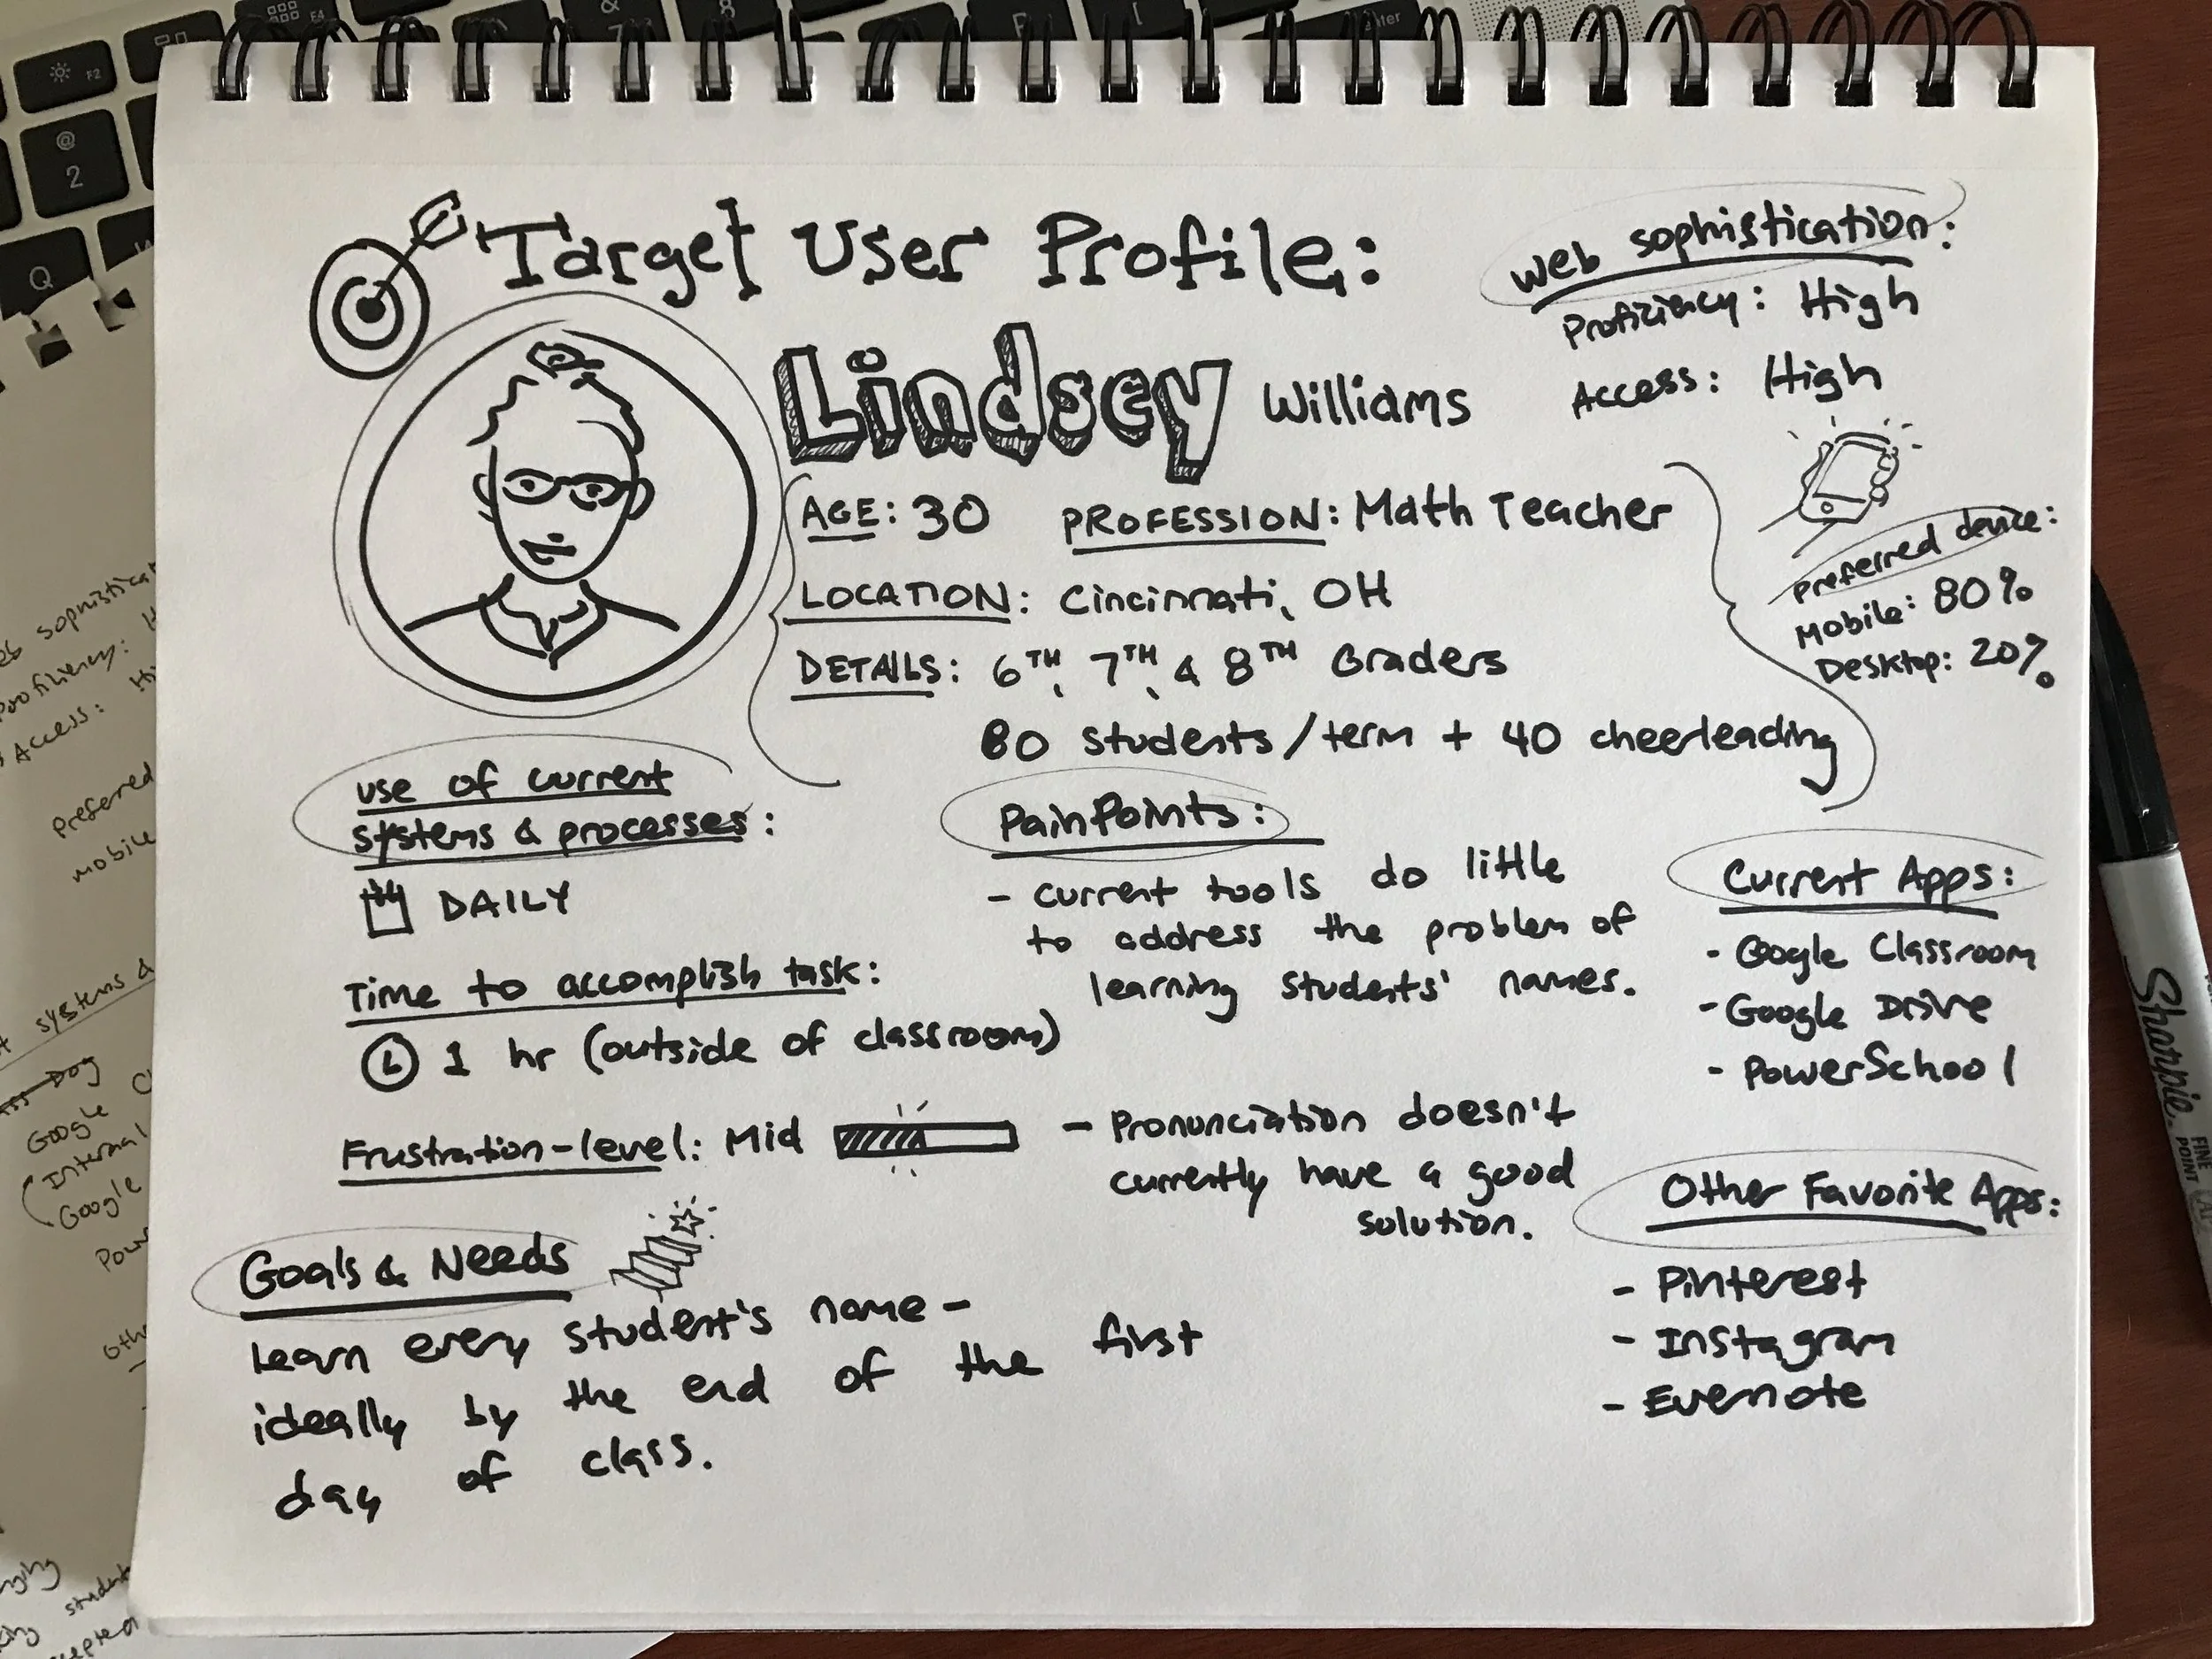 Target User Profile:
Lindsey Williams
AGE: 30 PROFESSION: Math Teacher
LOCATION: Cincinnati, OH
DETAILS: 6TH, 7TH, & 8TH Graders
80 students/term + 40 cheerleading
Web sophistication:
Proficiency: High
Access: High
Preferred device:
Mobile: 80%
Desktop: 20%
use of current
systems & processes:
DAILY
Time to accomplish task:
1 hr (outside of classroom)
Frustration-level: Mid
Goals & Needs
Learn every student's name -
ideally by the end of the first
day of class.
PainPoints:
- current tools do little
to address the problem of
learning students' names.
- Pronunciation doesn't
currently have a good
solution.
Current Apps:
- Google Classroom
- Google Drive
- PowerSchool
Other Favorite Apps:
- Pinterest
- Instagram
- Evernote
Sharpie.
FINE
POINT
F2
F4
@
2
Q
&
7
8
P
[
sophistica
Proficiency:
Access:
Preferred
mobile
systems &
Dog
Google
Internal
Google